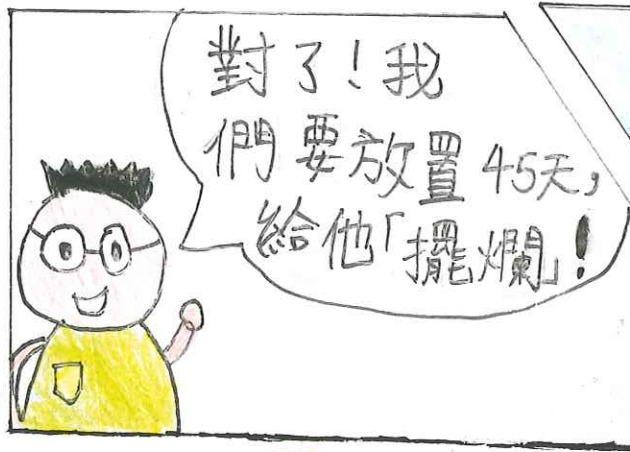 對了！我
們要放置45天，
給他「擺爛」！